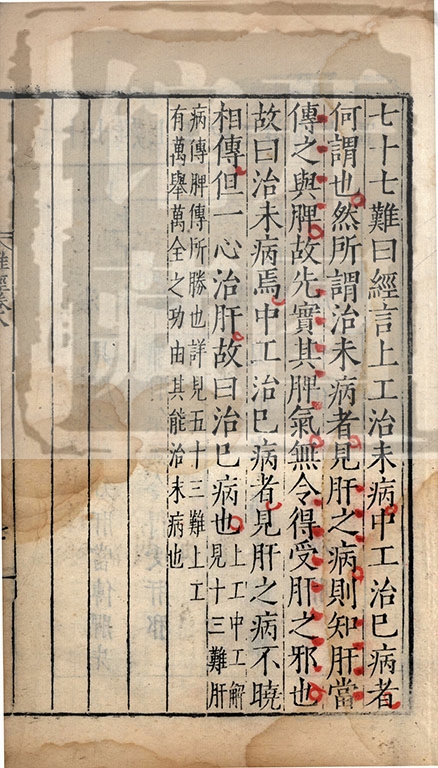 七十七難曰經言上工治未病中工治巳病者
何謂也然所謂治未病者見肝之病則知肝當
傳之與脾故先實其脾氣無令得受肝之邪也
故曰治未病焉中工治巳病者見肝之病不曉
相傳但一心治肝故曰治巳病也
上工中工解
見十三難肝
病傳脾傳所勝也詳見五十三難上工
有萬舉萬全之功由其能治未病也
難經卷八